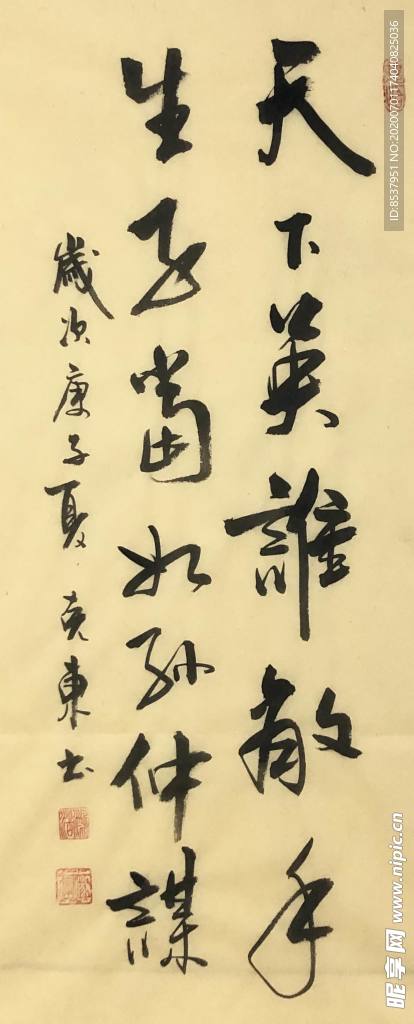 天下英誰敵手
生子當如孫仲謀
歲次庚子夏克東書
ID:8537951 NO:20200701174040825036
昵享网 www.nipic.cn